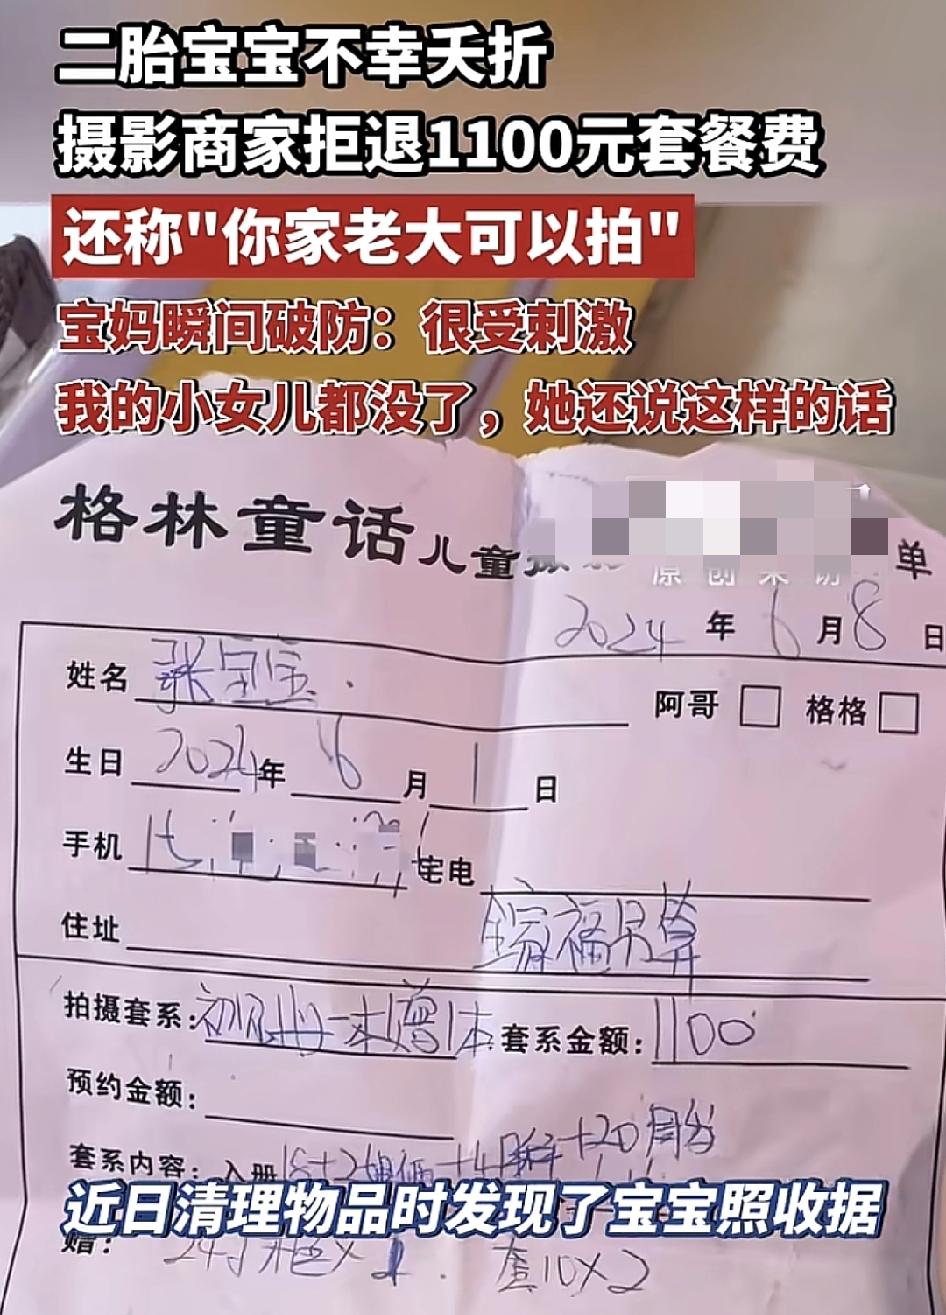 二胎宝宝不幸夭折
摄影商家拒退1100元套餐费
还称"你家老大可以拍"
宝妈瞬间破防：很受刺激
我的小女儿都没了，她还说这样的话
格林童话儿童摄 单
原创采访
2024年6月8日
姓名 张宝宝 阿哥 格格
生日 2024年6月1日
手机 宅电
住址 全家福另算
拍摄套系： 一本赠1本 套系金额：1100
预约金额：
套系内容：入册 +20周岁
近日清理物品时发现了宝宝照收据
赠： 10×2